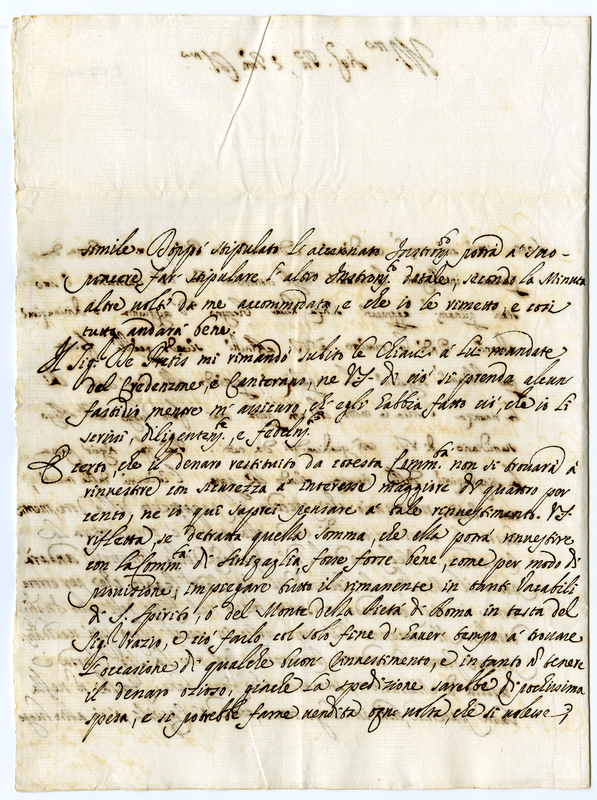 simile. Doppò stipulato li accennato Instrom.to potrà à suo
parere far stipulare l'altro Instrom.to dotale secondo la Minuta
altre volte da me accommodata, e che io le rimetto, e così
tutto andarà bene.
Il Sig.r De Pretis mi rimandò subito le Chiavi à lui mandate
del Credenzone, e Canterano, ne V.S. di ciò si prenda alcun
fastidio mentre mi assicuro, ch'egli habbia fatto ciò, che io li
scrissi, diligentem.te, e fedelm.te
È certo, che il denaro restituito da cotesta Comm.tà non si trovarà à
rinvestire con sicurezza à interesse maggiore di quattro per
cento, ne io qui saprei pensare à tale rinvestimento. V.S.
rifletta, se detratta quella somma, che ella potrà rinvestire
con la Comm.tà di Sinigaglia, fosse forse bene, come per modo di
provisione, impiegare tutto il rimanente in tanti Vacabili
di S. Spirito, ò del Monte della Pietà di Roma in testa del
Sig.r Orazio, e ciò farlo col solo fine d'haver tempo à trovare
l'occasione di qualche buon rinvestimento, e in tanto n.o tenere
il denaro ozioso, giache la spedizione sarebbe di pochissima
spesa, e si potrebbe farne vendita ogni volta, che si volesse